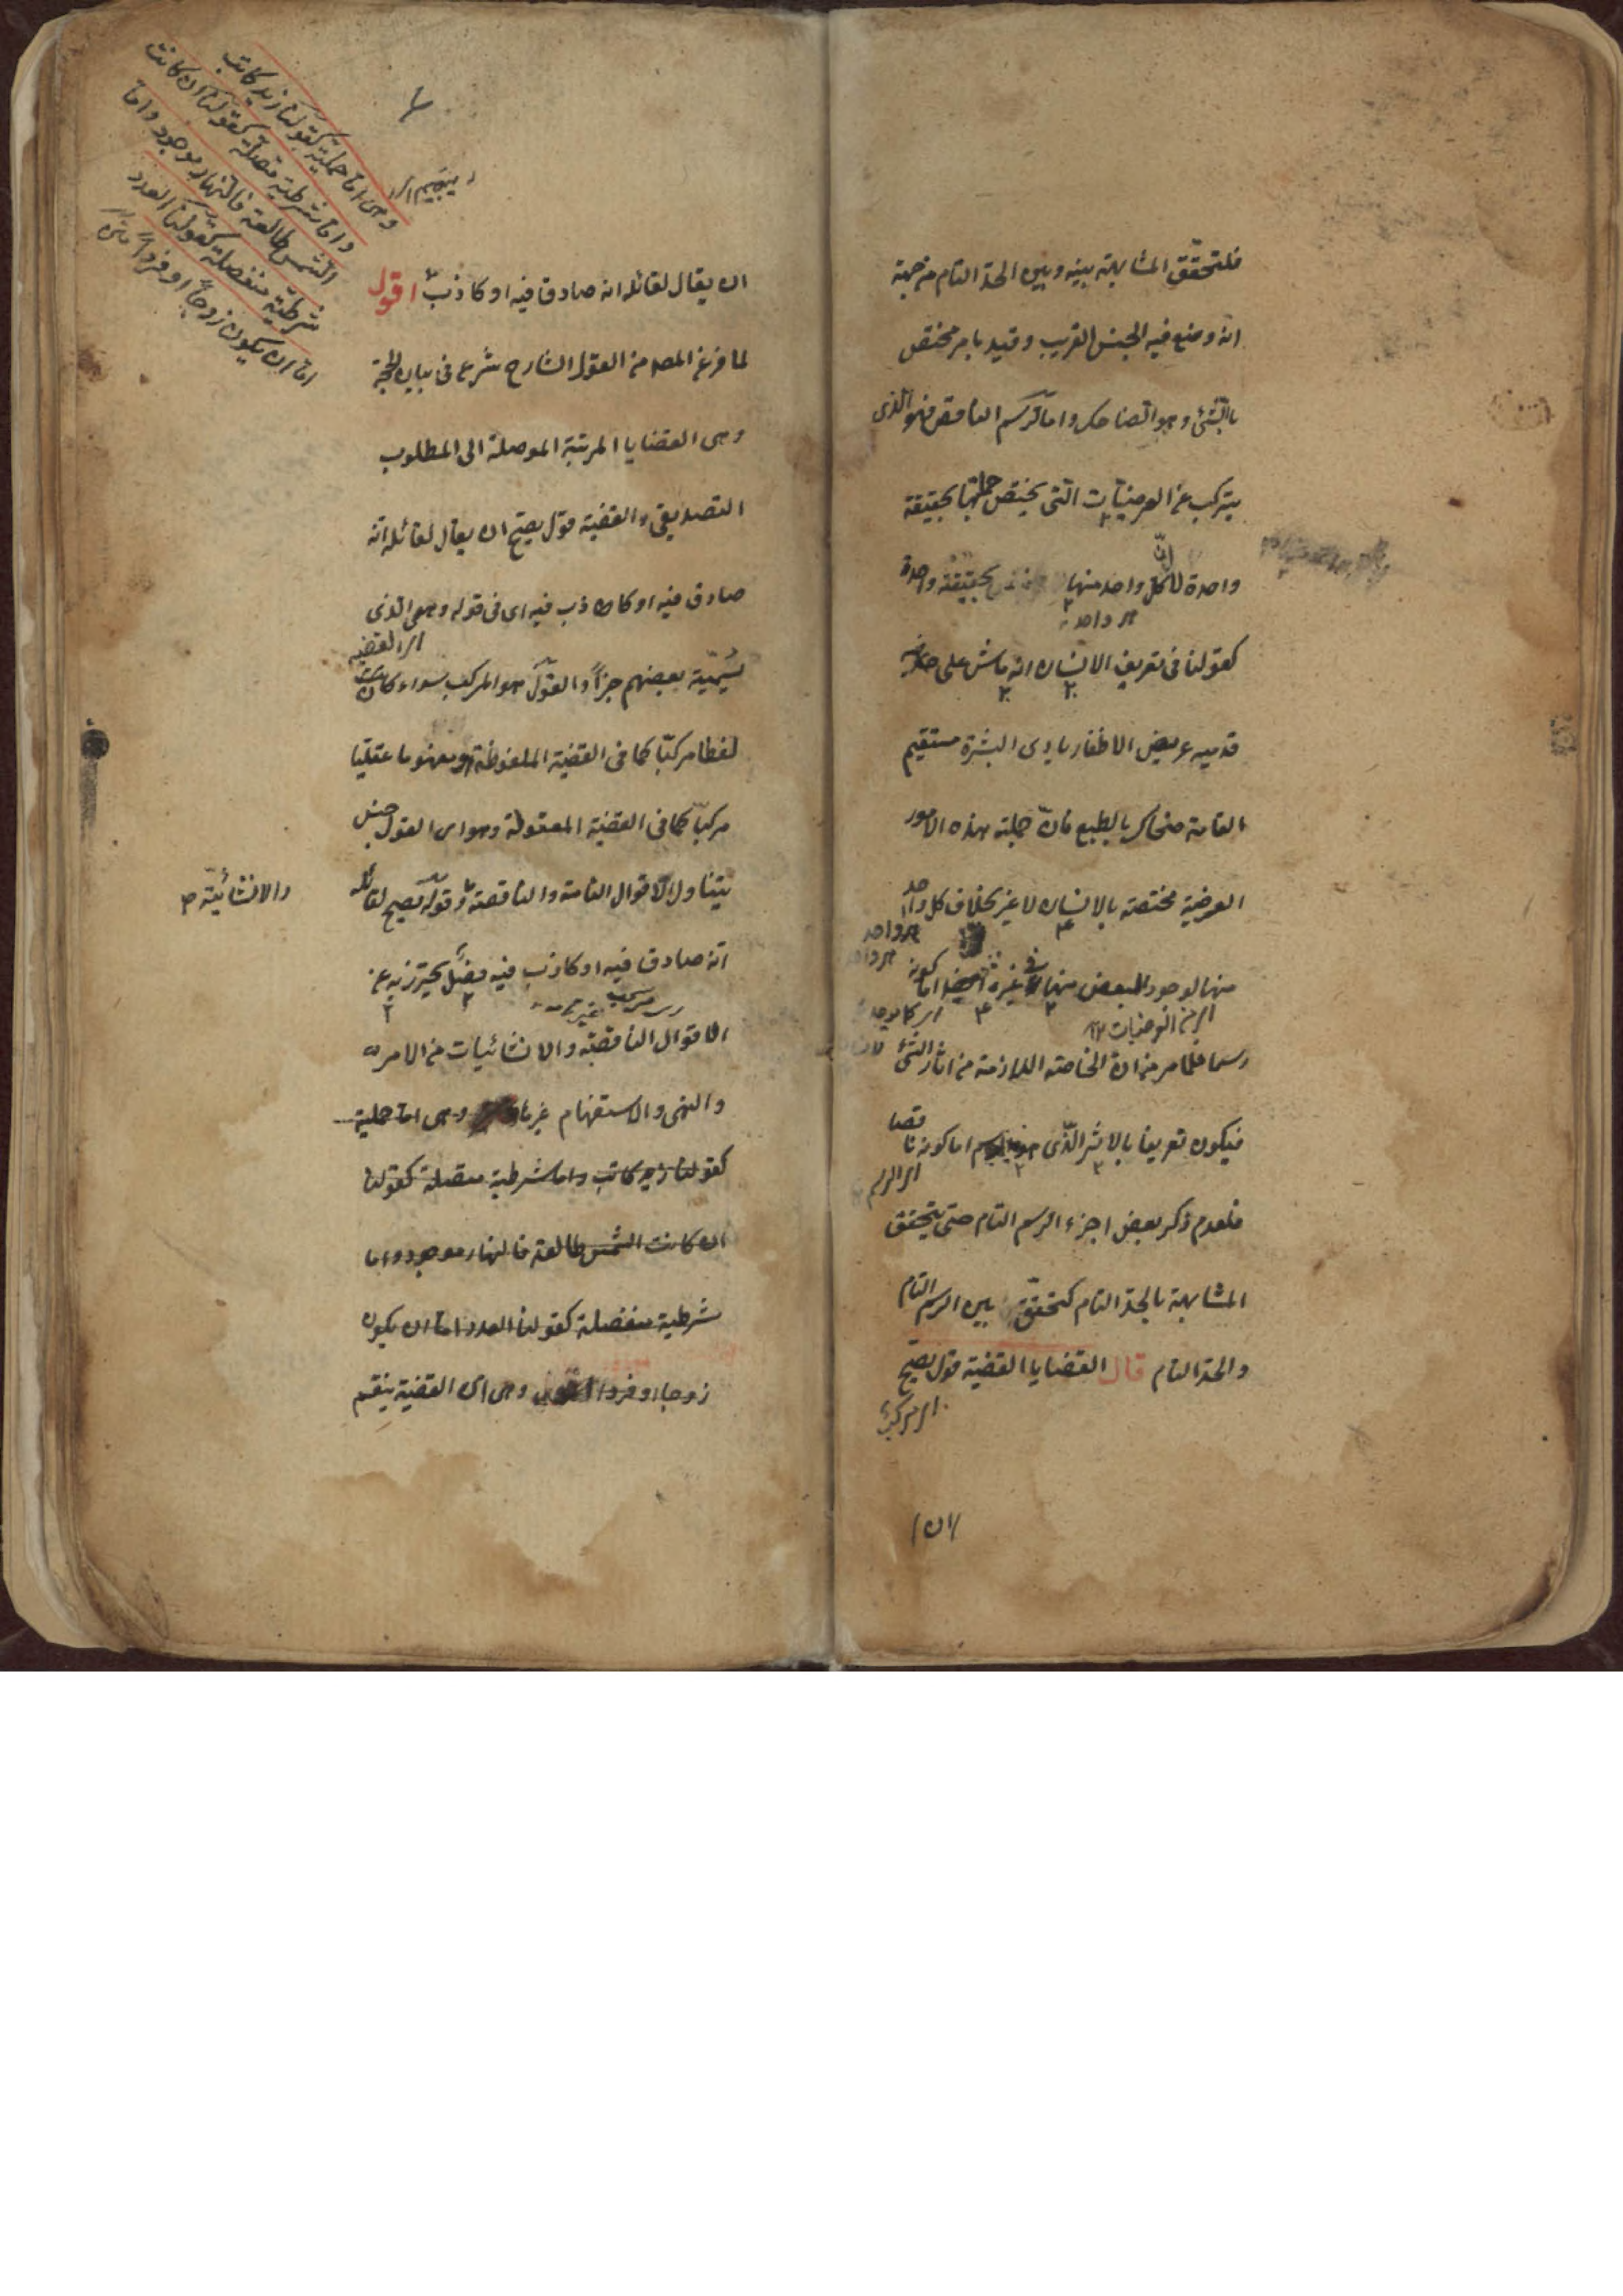 فلتحقّق المشابهة بينه وبين الحدّ التام من جهة
انه وضع فيه الجنس القريب وقيد بامر مختص
بالشئ وهو الضاحك واما الرسم الناقص فهو الذى
يتركب عن العرضيات التى يختص جملتها بحقيقة
واحدة لان كل واحد منها بحقيقة واحدة
كقولنا فى تعريف الانسان انه ماش على
قدميه عريض الاظفار بادى البشرة مستقيم
القامة ضحاك بالطبع فان جملة هذه الامور
العرضية مختصة بالانسان لا غير بخلاف كل واحد
منها لوجود البعض منها فى غيره ايضا اما كونه
اى من العرضيات
رسما فلما مر من ان الخاصة اللازمة من اثار الشئ
فيكون تعريفا بالاثر الذى اما كونه ناقصا
اى الرسم
فلعدم ذكر بعض اجزاء الرسم التام حتى يتحقق
المشابهة بالحد التام كتحقّق بين الرسم التام
والحد التام قال القضايا القضية قول يصح
اى مركب
ان
وهى اما حملية كقولنا زيد كاتب
واما شرطية متصلة كقولنا ان كانت
الشمس طالعة فالنهار موجود واما
شرطية منفصلة كقولنا العدد
اما ان يكون زوجاً او فرداً
ان يقال لقائله انه صادق فيه او كاذب اقول
لما فرغ المص من القول الشارح شرع فى بيان الحجة
وهى القضايا المرتبة الموصلة الى المطلوب
التصديقى والقضية قول يصح ان يقال لقائله انه
صادق فيه او كاذب فيه اى فى قوله وهى الذى
اى القضية
يسميه بعضهم خبراً والقول هو المركب سواء كان
لفظا مركبا كما فى القضية الملفوظة او مفهوما عقليا
مركبا كما فى القضية المعقولة وهو اى القول جنس
يتناول الاقوال التامة والناقصة وقوله يصح لقائله
والانشائية
انه صادق فيه او كاذب فيه فصل يحترز به عن
الاقوال الناقصة والانشائيات من الامر
والنهى والاستفهام غيرها وهى اما حملية
كقولنا زيد كاتب واما شرطية متصلة كقولنا
ان كانت الشمس طالعة فالنهار موجود واما
شرطية منفصلة كقولنا العدد اما ان يكون
زوجا او فردا اقول وهى اى القضية ينقسم